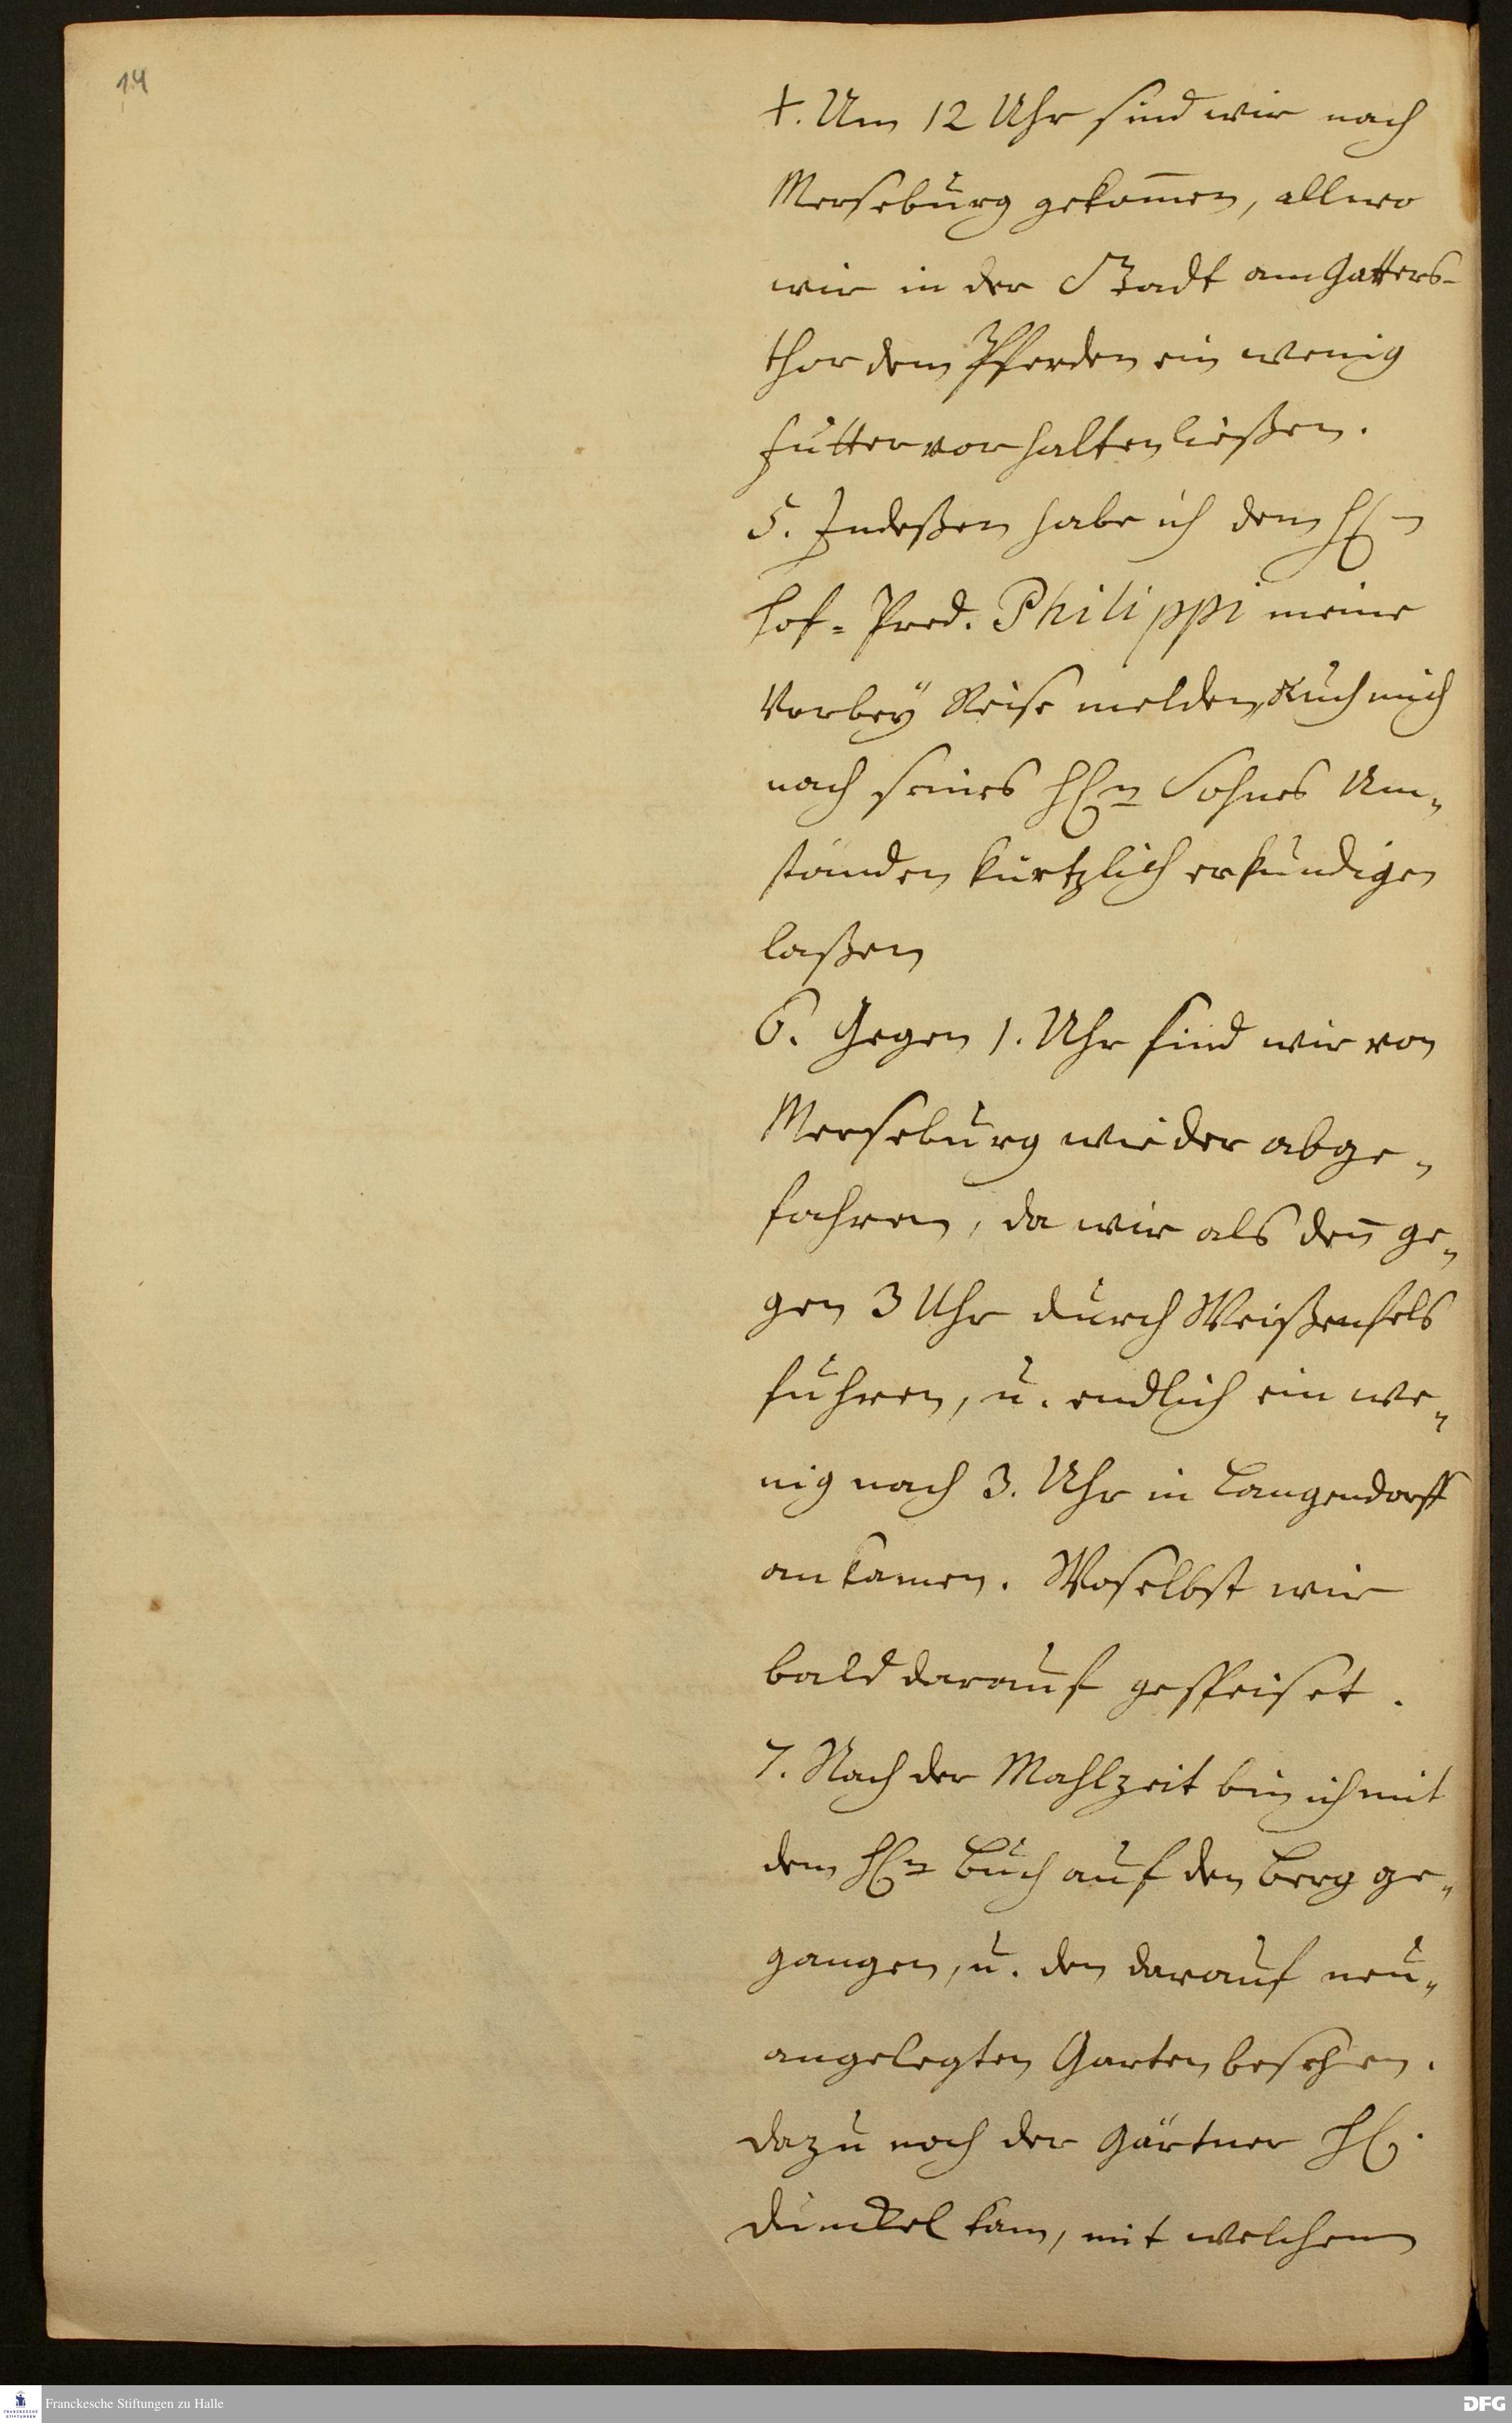 14
4. Um 12 Uhr sind wir nach
Merseburg gekom̅en, allwo
wir in der Stadt am Gatters-
thor dem Pferden ein wenig
Futter vorhalten ließen.
5. Indeßen habe ich dem H[n]
Hof-Pred. Philippi meine
Vorbeÿ Reise melden, auch mich
nach seines H[n] Sohnes Um-
ständen kürtzlich erkundigen
laßen
6. Gegen 1. Uhr sind wir von
Merseburg wieder abge-
fahren, da wir als den̅ ge-
gen 3 Uhr durch Weißenfels
fuhren, u. endlich ein we-
nig nach 3. Uhr in Langendorff
ankamen. Woselbst wir
bald darauf gespeiset.
7. Nach der Mahlzeit bin ich mit
dem H[n] Buch auf den Berg ge-
gangen, u. den darauf neu-
angelegten Garten besehen.
dazu noch der Gärtner H.
Dunckel kam, mit welchem
Franckesche Stiftungen zu Halle
DFG